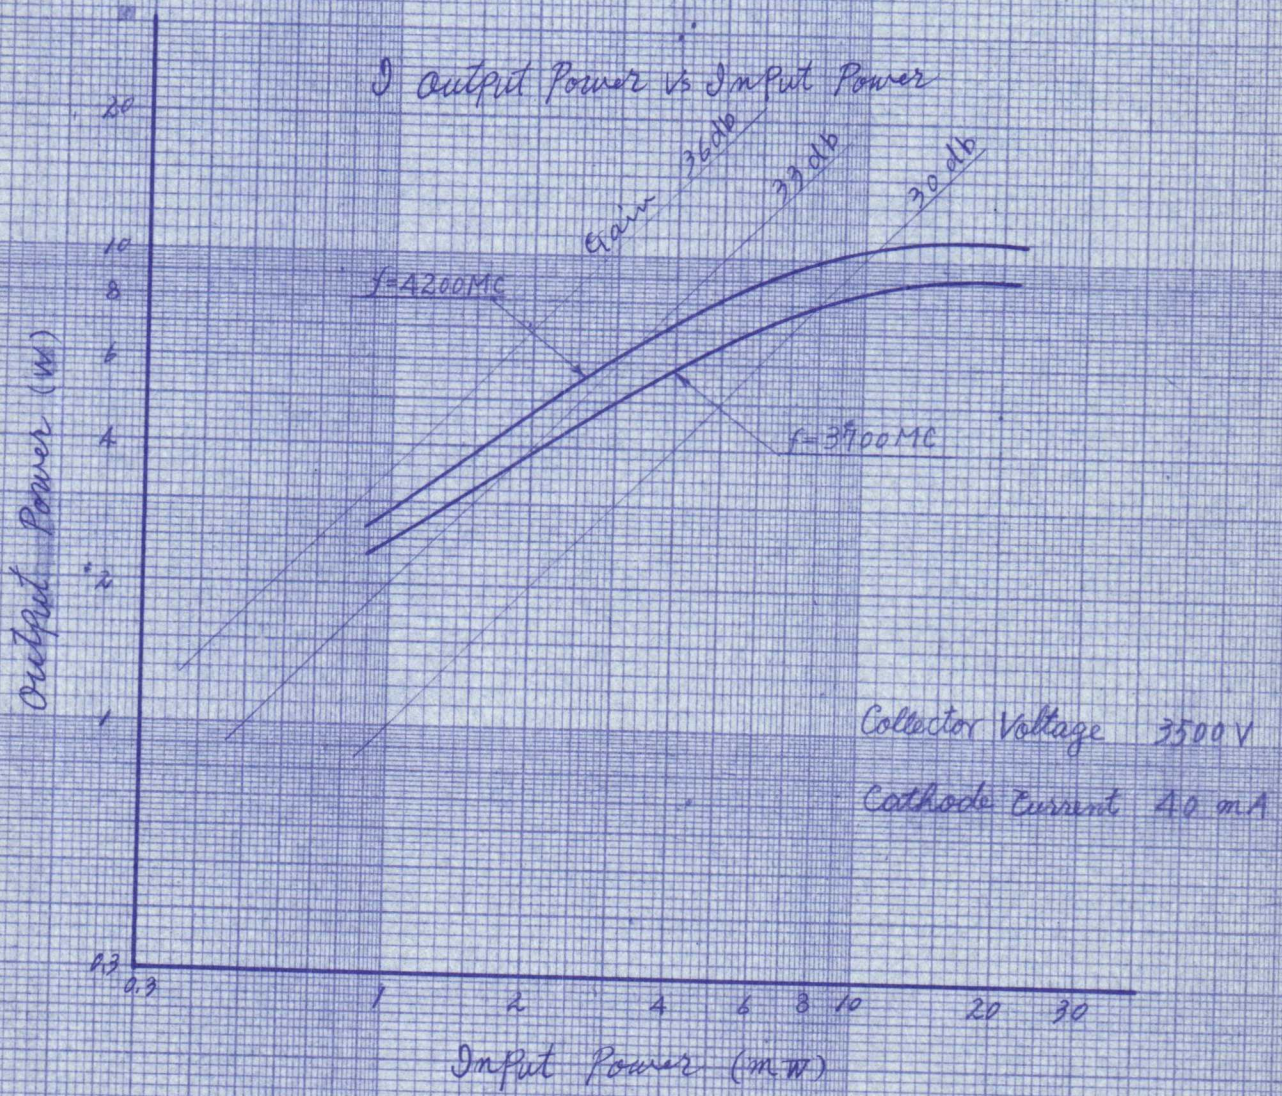 I Output Power vs Input Power
20
10
8
6
4
2
1
0.3
Output Power (W)
Gain 36db
33db
30db
f=4200MC
Collector Voltage 3500 V
Cathode Current 40 mA
0.3 1 2 4 6 8 10 20 30
Input Power (mW)